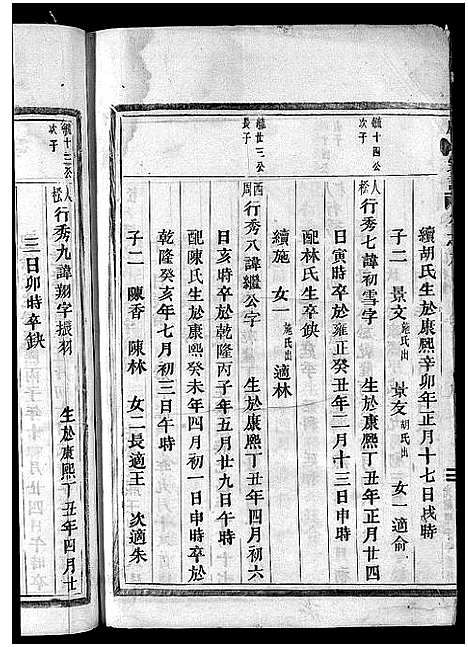 續胡氏生於康熙辛卯年正月十七日戌時
子二 景文 施氏出 景友 胡氏出 女一適俞
毓十四公次子
松人行秀七諱初雪字 生於康熙丁丑年正月廿四
日寅時卒於雍正癸丑年二月十三日申時
配林氏生卒缺
續施 女一 施氏出 適林
毓廿三公長子
西周行秀八諱繼公字 生於康熙丁丑年四月初六
日亥時卒於乾隆丙子年五月廿九日午時
配陳氏生於康熙癸未年四月初一日申時卒於
乾隆癸亥年七月初三日午時
子二 陳香 陳林 女二長適王 次適朱
毓十三公次子
松人行秀九諱翔字振羽 生於康熙丁丑年四月廿
三日卯時卒缺